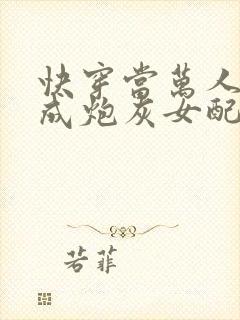 快穿當萬人
成炮灰女配
若菲